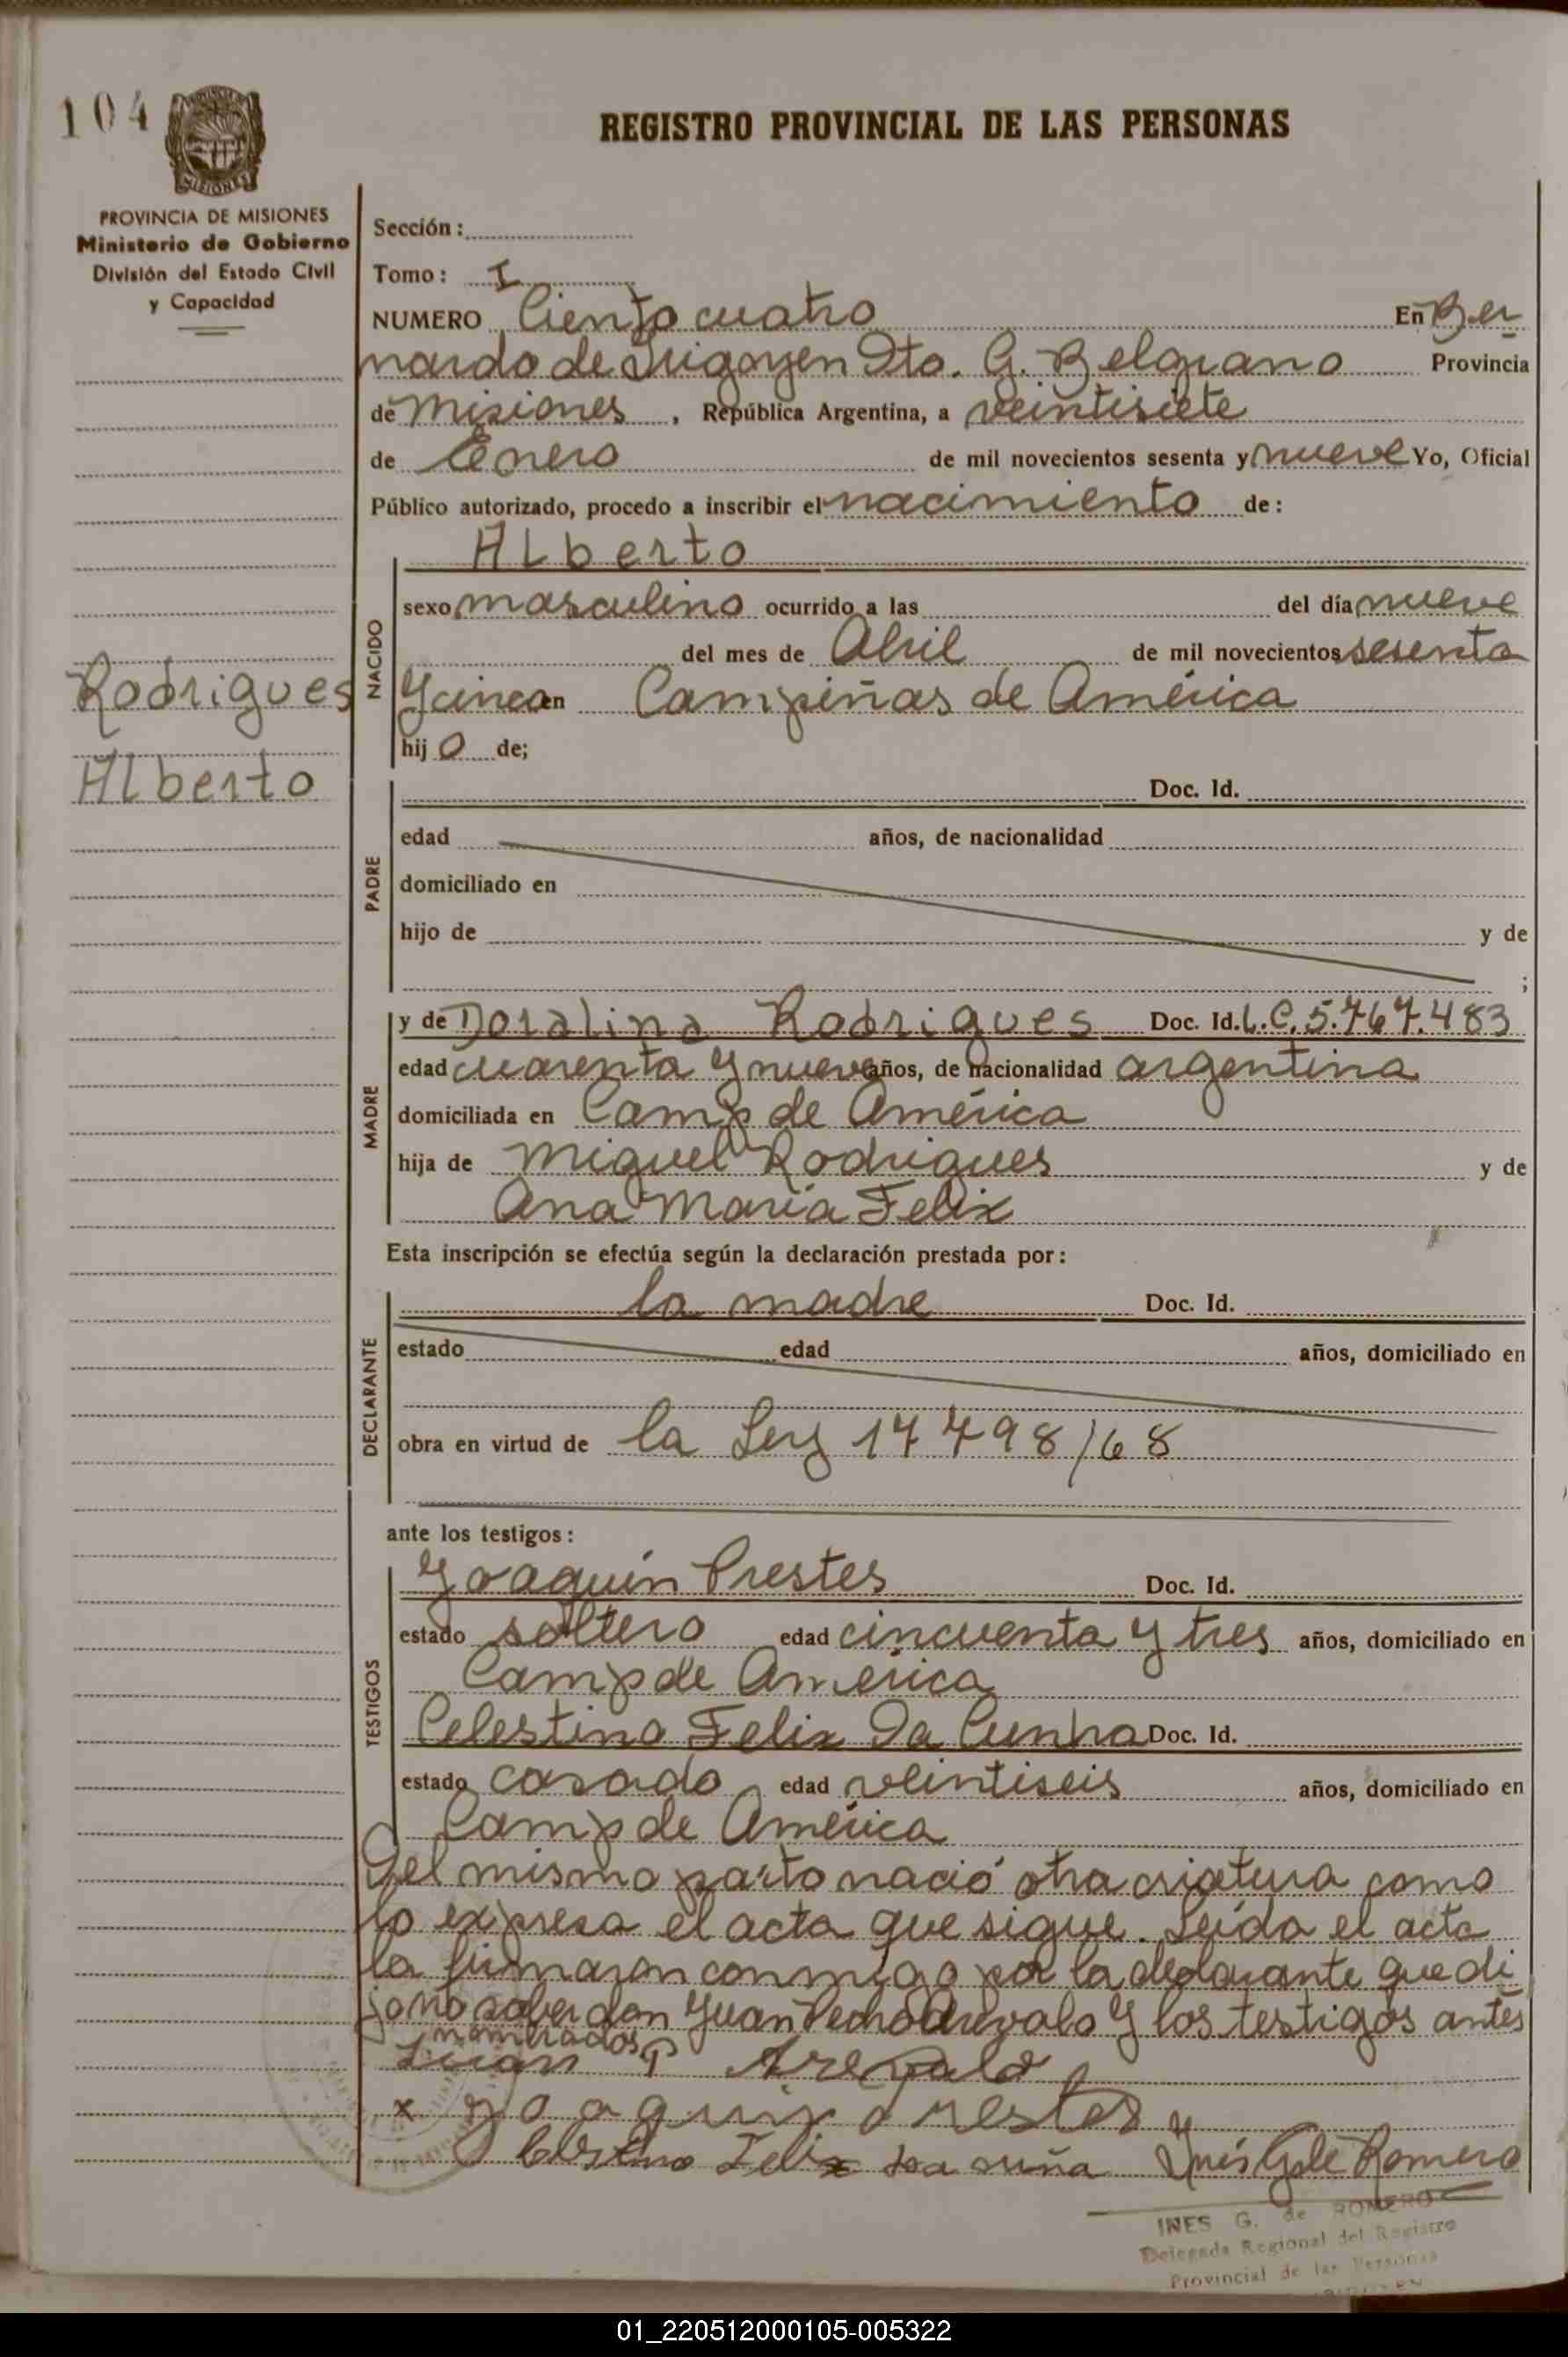 104
REGISTRO PROVINCIAL DE LAS PERSONAS
PROVINCIA DE MISIONES
Ministerio de Gobierno
División del Estado Civil
y Capacidad
Sección:
Tomo: I
NUMERO Ciento cuatro En Ber
nardo de Irigoyen Dto. G. Belgrano Provincia
de Misiones, República Argentina, a veintisiete
de Enero de mil novecientos sesenta y nueve Yo, Oficial
Público autorizado, procedo a inscribir el nacimiento de:
Rodrigues
Alberto
NACIDO
Alberto
sexo masculino ocurrido a las del día nueve
del mes de Abril de mil novecientos sesenta
y cinco en Campiñas de América
hijo de;
PADRE
Doc. Id.
edad años, de nacionalidad
domiciliado en
hijo de y de
;
MADRE
y de Doralina Rodrigues Doc. Id. L.C. 5.767.483
edad cuarenta y nueve años, de nacionalidad argentina
domiciliada en Camp de América
hija de Miguel Rodrigues y de
Ana María Felix
Esta inscripción se efectúa según la declaración prestada por:
DECLARANTE
la madre Doc. Id.
estado edad años, domiciliado en
obra en virtud de la Ley 17798/68
ante los testigos:
TESTIGOS
Joaquín Prestes Doc. Id.
estado soltero edad cincuenta y tres años, domiciliado en
Camp de América
Celestino Felix Da Cunha Doc. Id.
estado casado edad veintiseis años, domiciliado en
Camp de América
Del mismo parto nació otra criatura como
lo expresa el acta que sigue. Leída el acta
la firmaron conmigo por la declarante que di
jo no saber don Juan Pedro Arevalo y los testigos antes
nombrados
Juan P Arevalo
x Joaquin prestes
Felix Inés G de Romero
INES G. de ROMERO
Delegada Regional del Registro
Provincial de las Personas
01_220512000105-005322